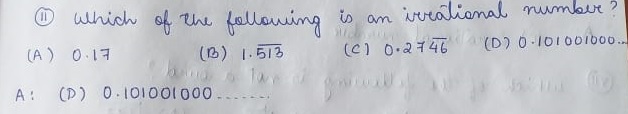 (ii) Which of the following is an irrational number?
(A) 0.17 (B) 1.5̅1̅3̅ (C) 0.27̅4̅6̅ (D) 0.101001000...
A: (D) 0.101001000.......